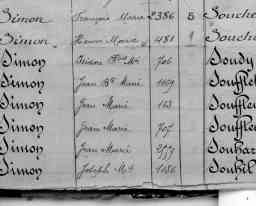 Simon François Marie 2386 8 Souche
Simon Henri Marie 481 9 Souche
Simon Marie 706 Soudy
Simon Jean Bte Marie 1109 Soufflet
Simon Jean Marie 163 Souffleu
Simon Jean Marie 707 Souffleu
Simon Jean Marie Souhar
Simon Joseph Mie 1036 Souhil